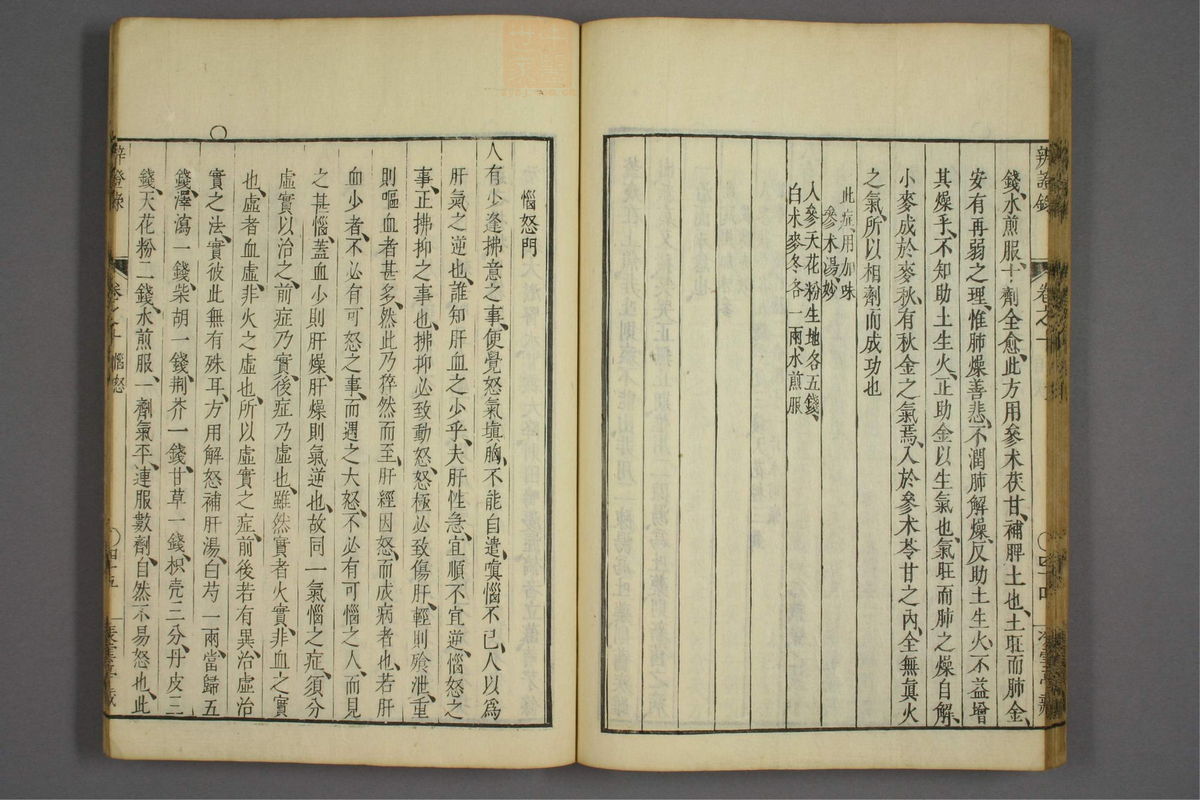 錢水煎服十劑全愈此方用參朮茯甘補脾土也土旺而肺金
安有再弱之理惟肺燥善悲不潤肺解燥反助土生火不益增
其燥乎不知助土生火正助金以生氣也氣旺而肺之燥自解
小麥成於麥秋有秋金之氣焉入於參朮苓甘之內全無眞火
之氣所以相劑而成功也
此症用加味
參朮湯妙
人參天花粉生地各五錢
白朮麥冬各一兩水煎服
惱怒門
人有少逢拂意之事便覺怒氣塡胸不能自遣嗔惱不已人以爲
肝氣之逆也誰知肝血之少乎夫肝性急宜順不宜逆惱怒之
事正拂抑之事也拂抑必致動怒怒極必致傷肝輕則飱泄重
則嘔血者甚多然此乃猝然而至肝經因怒而成病者也若肝
血少者不必有可怒之事而遇之大怒不必有可惱之人而見
之甚惱蓋血少則肝燥肝燥則氣逆也故同一氣惱之症須分
虛實以治之前症乃實後症乃虛也雖然實者火實非血之實
也虛者血虛非火之虛也所以虛實之症前後若有異治虛治
實之法實彼此無有殊耳方用解怒補肝湯白芍一兩當歸五
錢澤瀉一錢柴胡一錢荆芥一錢甘草一錢枳壳三分丹皮三
錢天花粉二錢水煎服一劑氣平連服數劑自然不易怒也此